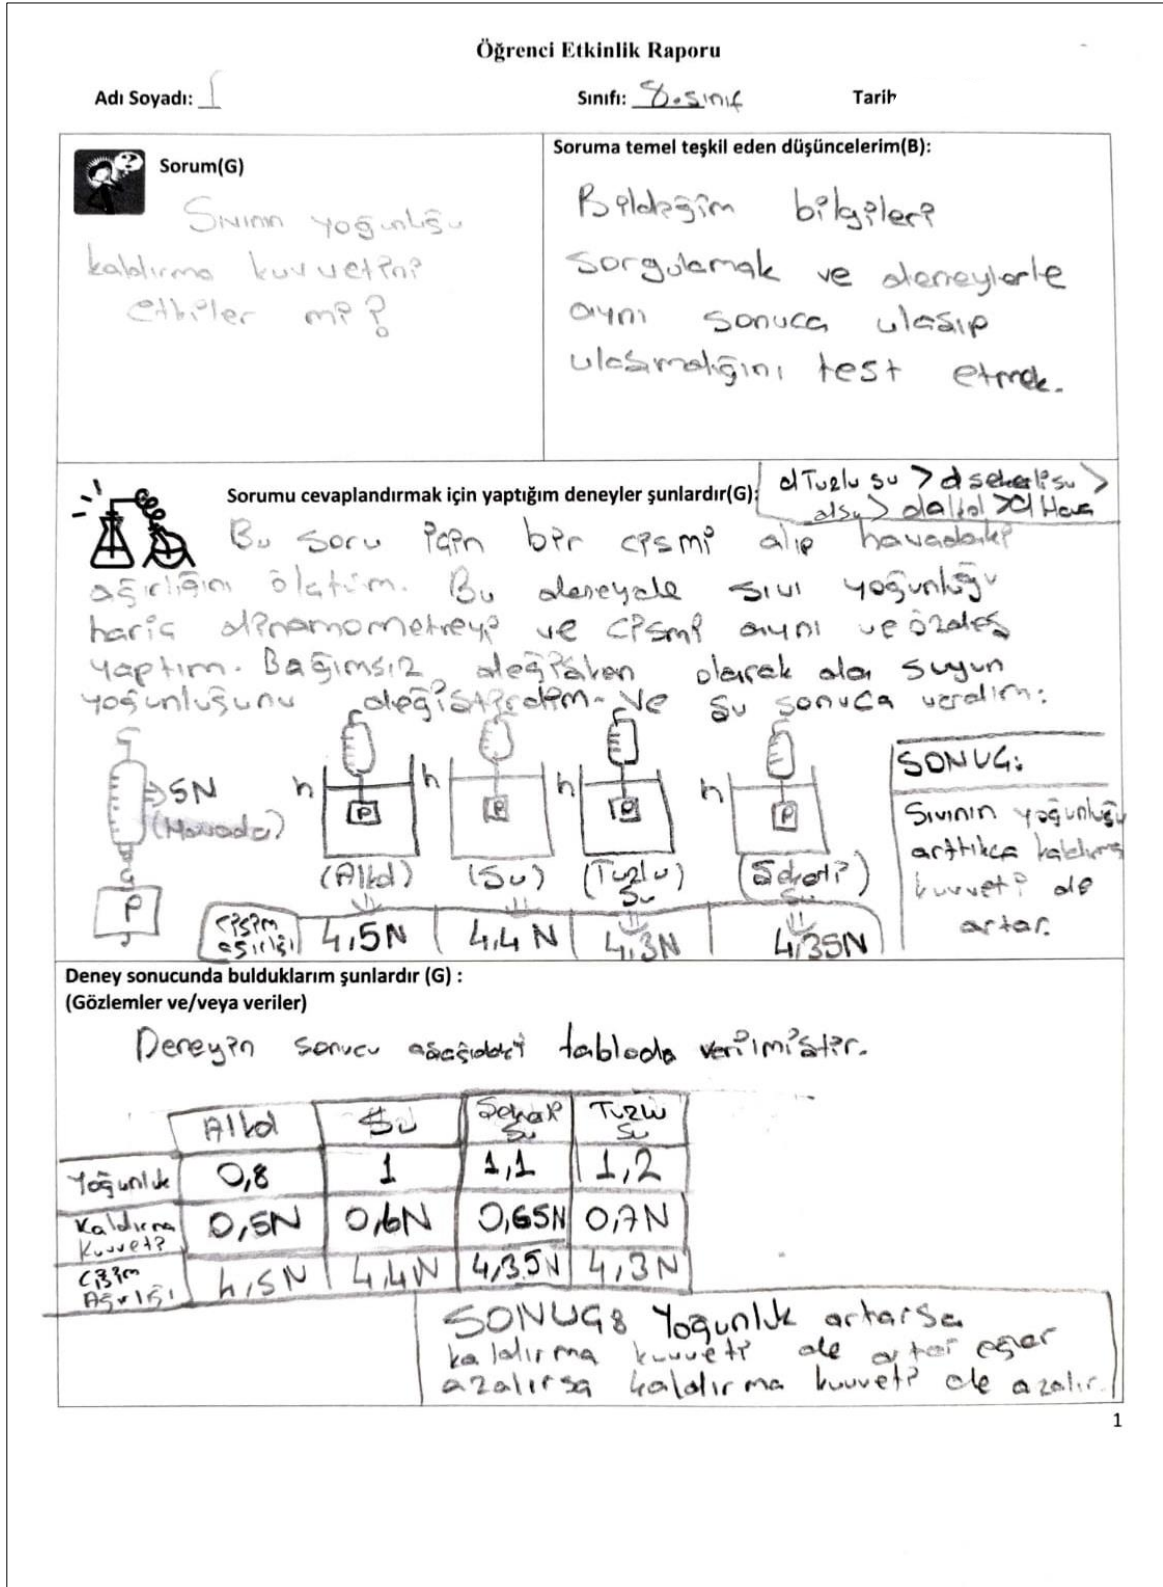 Öğrenci Etkinlik Raporu
Adı Soyadı:
Sınıfı: 8.sınıf
Tarih
Sorum(G)
Sıvının yoğunluğu
kaldırma kuvvetini
etkiler mi?
Soruma temel teşkil eden düşüncelerim(B):
Bildiğim bilgileri
sorgulamak ve deneylerle
aynı sonuca ulaşıp
ulaşmadığını test etmek.
Sorumu cevaplandırmak için yaptığım deneyler şunlardır(G):
dTuzlu su > dşekerlisu >
dsu > dalkol > dHava
Bu soru için bir cismi alıp havadaki
ağırlığını ölçtüm. Bu deneyde sıvı yoğunluğu
hariç dinamometreyi ve cismi aynı ve özdeş
yaptım. Bağımsız değişken olarak da suyun
yoğunluğunu değiştirdim. Ve şu sonuca vardım:
5N
(Havada)
P
h P
h P
h P
h P
(Alkol) (Su) (Tuzlu Su) (Şekerli Su)
Cisim ağırlığı 4,5N 4,4N 4,3N 4,35N
SONUÇ:
Sıvının yoğunluğu
arttıkça kaldırma
kuvveti de
artar.
Deney sonucunda bulduklarım şunlardır (G) :
(Gözlemler ve/veya veriler)
Deneyin sonucu aşağıdaki tabloda verilmiştir.
Alkol Su Şekerli Su Tuzlu Su
Yoğunluk 0,8 1 1,1 1,2
Kaldırma Kuvveti 0,5N 0,6N 0,65N 0,7N
Cisim Ağırlığı 4,5N 4,4N 4,35N 4,3N
SONUÇ: Yoğunluk artarsa
kaldırma kuvveti de artar eğer
azalırsa kaldırma kuvveti de azalır.
1